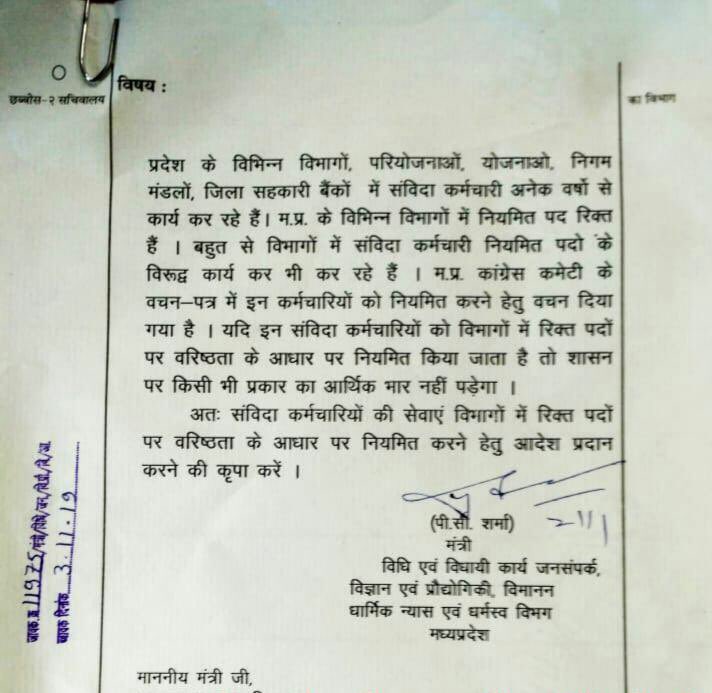 विषय :
छब्बीस-२ सचिवालय
का विभाग
प्रदेश के विभिन्न विभागों, परियोजनाओं, योजनाओ, निगम
मंडलों, जिला सहकारी बैंकों में संविदा कर्मचारी अनेक वर्षो से
कार्य कर रहे हैं। म.प्र. के विभिन्न विभागों में नियमित पद रिक्त
हैं । बहुत से विभागों में संविदा कर्मचारी नियमित पदो के
विरूद्व कार्य कर भी कर रहे हैं । म.प्र. कांग्रेस कमेटी के
वचन–पत्र में इन कर्मचारियों को नियमित करने हेतु वचन दिया
गया है । यदि इन संविदा कर्मचारियों को विभागों में रिक्त पदों
पर वरिष्ठता के आधार पर नियमित किया जाता है तो शासन
पर किसी भी प्रकार का आर्थिक भार नहीं पड़ेगा ।
अतः संविदा कर्मचारियों की सेवाएं विभागों में रिक्त पदों
पर वरिष्ठता के आधार पर नियमित करने हेतु आदेश प्रदान
करने की कृपा करें ।
(पी.सी. शर्मा)
मंत्री
विधि एवं विधायी कार्य जनसंपर्क,
विज्ञान एवं प्रौद्योगिकी, विमानन
धार्मिक न्यास एवं धर्मस्व विभग
मध्यप्रदेश
जावक.क्र 11975/मंत्री/विधि/जन./वि.प्रौ./वि./आ.
जावक दिनांक 3.11.19
माननीय मंत्री जी,